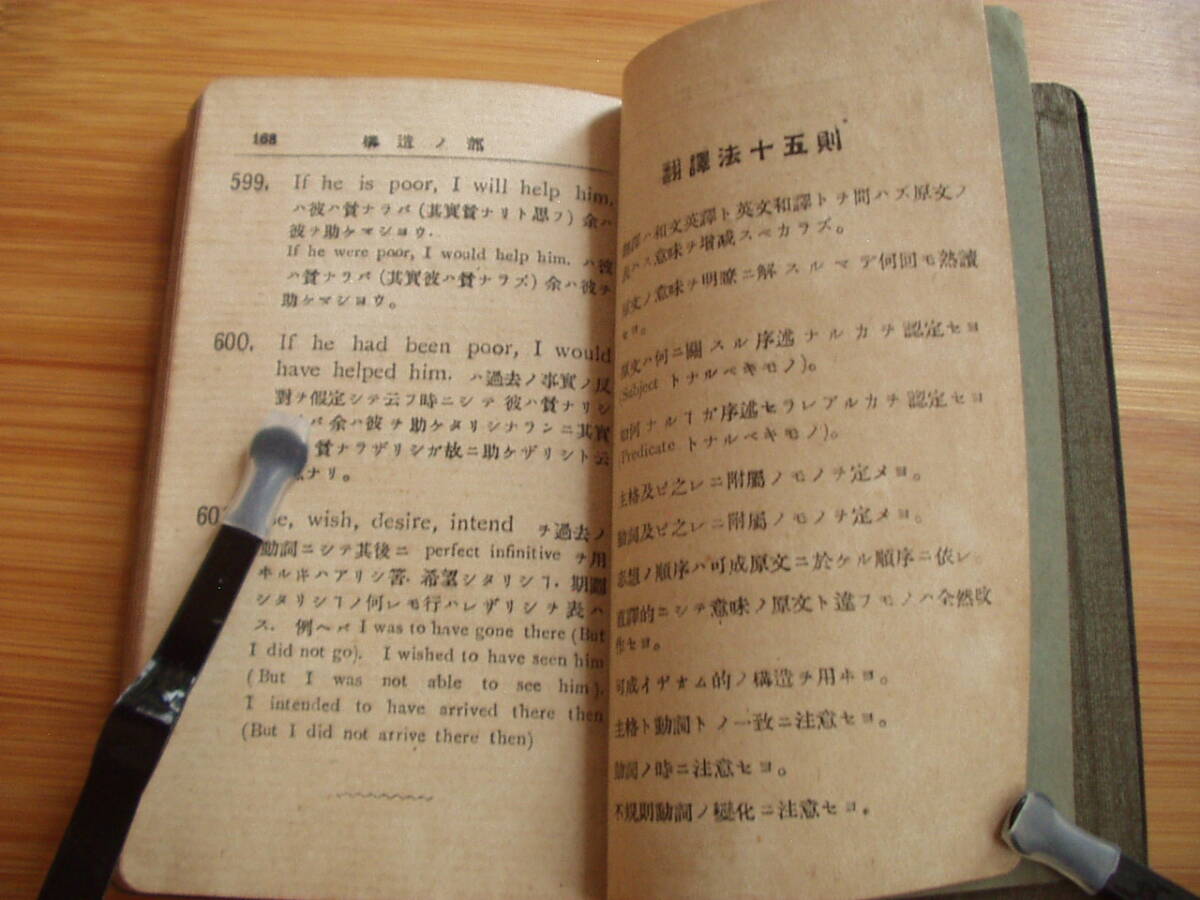 168 構造ノ部
599. If he is poor, I will help him.
ハ彼ハ貧ナラバ(其實貧ナリト思フ)余ハ
彼ヲ助ケマショウ.
If he were poor, I would help him. ハ彼
ハ貧ナラバ(其實彼ハ貧ナラズ)余ハ彼ヲ
助ケマショウ。
600. If he had been poor, I would
have helped him. ハ過去ノ事實ノ反
對ヲ假定シテ云フ時ニシテ 彼ハ貧ナリシ
バ 余ハ彼ヲ助ケタリシナランニ其實
貧ナラザリシガ故ニ助ケザリシト云
ナリ。
60 e, wish, desire, intend ヲ過去ノ
動詞ニシテ其後ニ perfect infinitive ヲ用
ホルキハアリシ筈. 希望シタリシヿ. 期圖
シタリシヿノ何レモ行ハレザリシヲ表ハ
ス. 例ヘバ I was to have gone there (But
I did not go). I wished to have seen him
(But I was not able to see him).
I intended to have arrived there then
(But I did not arrive there then)
翻譯法十五則
翻譯ハ和文英譯ト英文和譯トヲ問ハズ原文ノ
表ハス意味ヲ增減スベカラズ。
原文ノ意味ヲ明瞭ニ解スルマデ何回モ熟讀
セヨ。
原文ハ何ニ關スル序述ナルカヲ認定セヨ
(Subject トナルベキモノ)。
如何ナルヿガ序述セラレアルカヲ認定セヨ
(Predicate トナルベキモノ)。
主格及ビ之レニ附屬ノモノヲ定メヨ。
動詞及ビ之レニ附屬ノモノヲ定メヨ。
思想ノ順序ハ可成原文ニ於ケル順序ニ依レ。
直譯的ニシテ意味ノ原文ト違フモノハ全然改
作セヨ。
可成イヂオム的ノ構造ヲ用ヰヨ。
主格ト動詞トノ一致ニ注意セヨ。
動詞ノ時ニ注意セヨ。
不規則動詞ノ變化ニ注意セヨ。